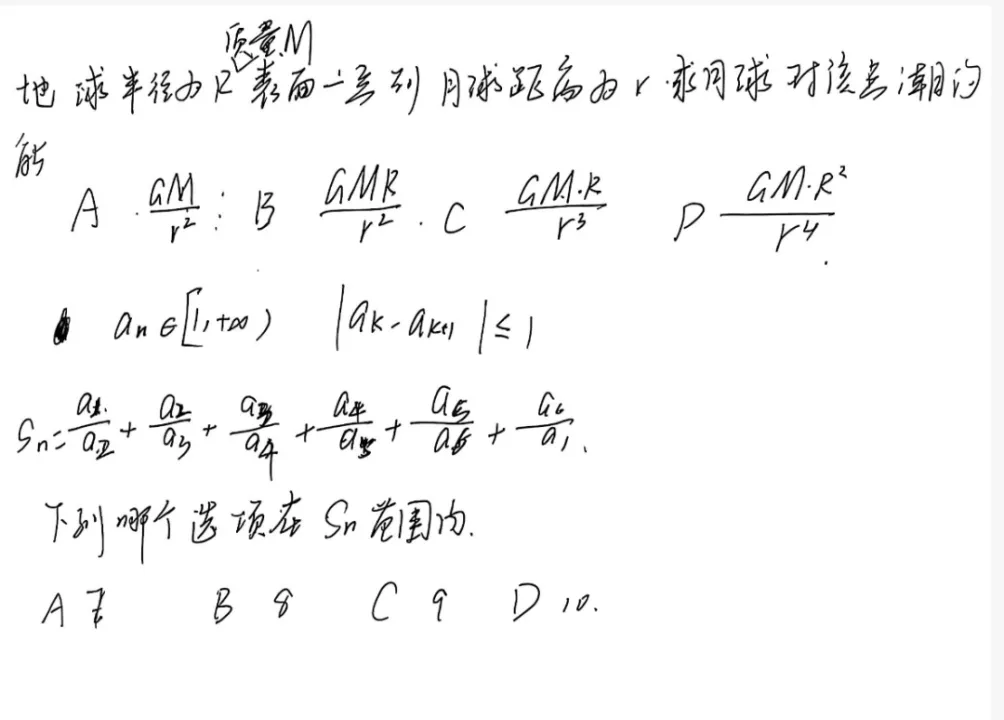 质量M
地球半径为R 表面一点到月球距离为r 求月球对该点潮汐
能
A GM/r² B GMR/r² C GM·R/r³ D GM·R²/r⁴
aₙ∈[1,+∞) |aₖ-aₖ₊₁|≤1
Sₙ=a₁/a₂+a₂/a₃+a₃/a₄+a₄/a₅+a₅/a₆+a₆/a₁.
下列哪个选项在Sₙ范围内.
A 7 B 8 C 9 D 10.